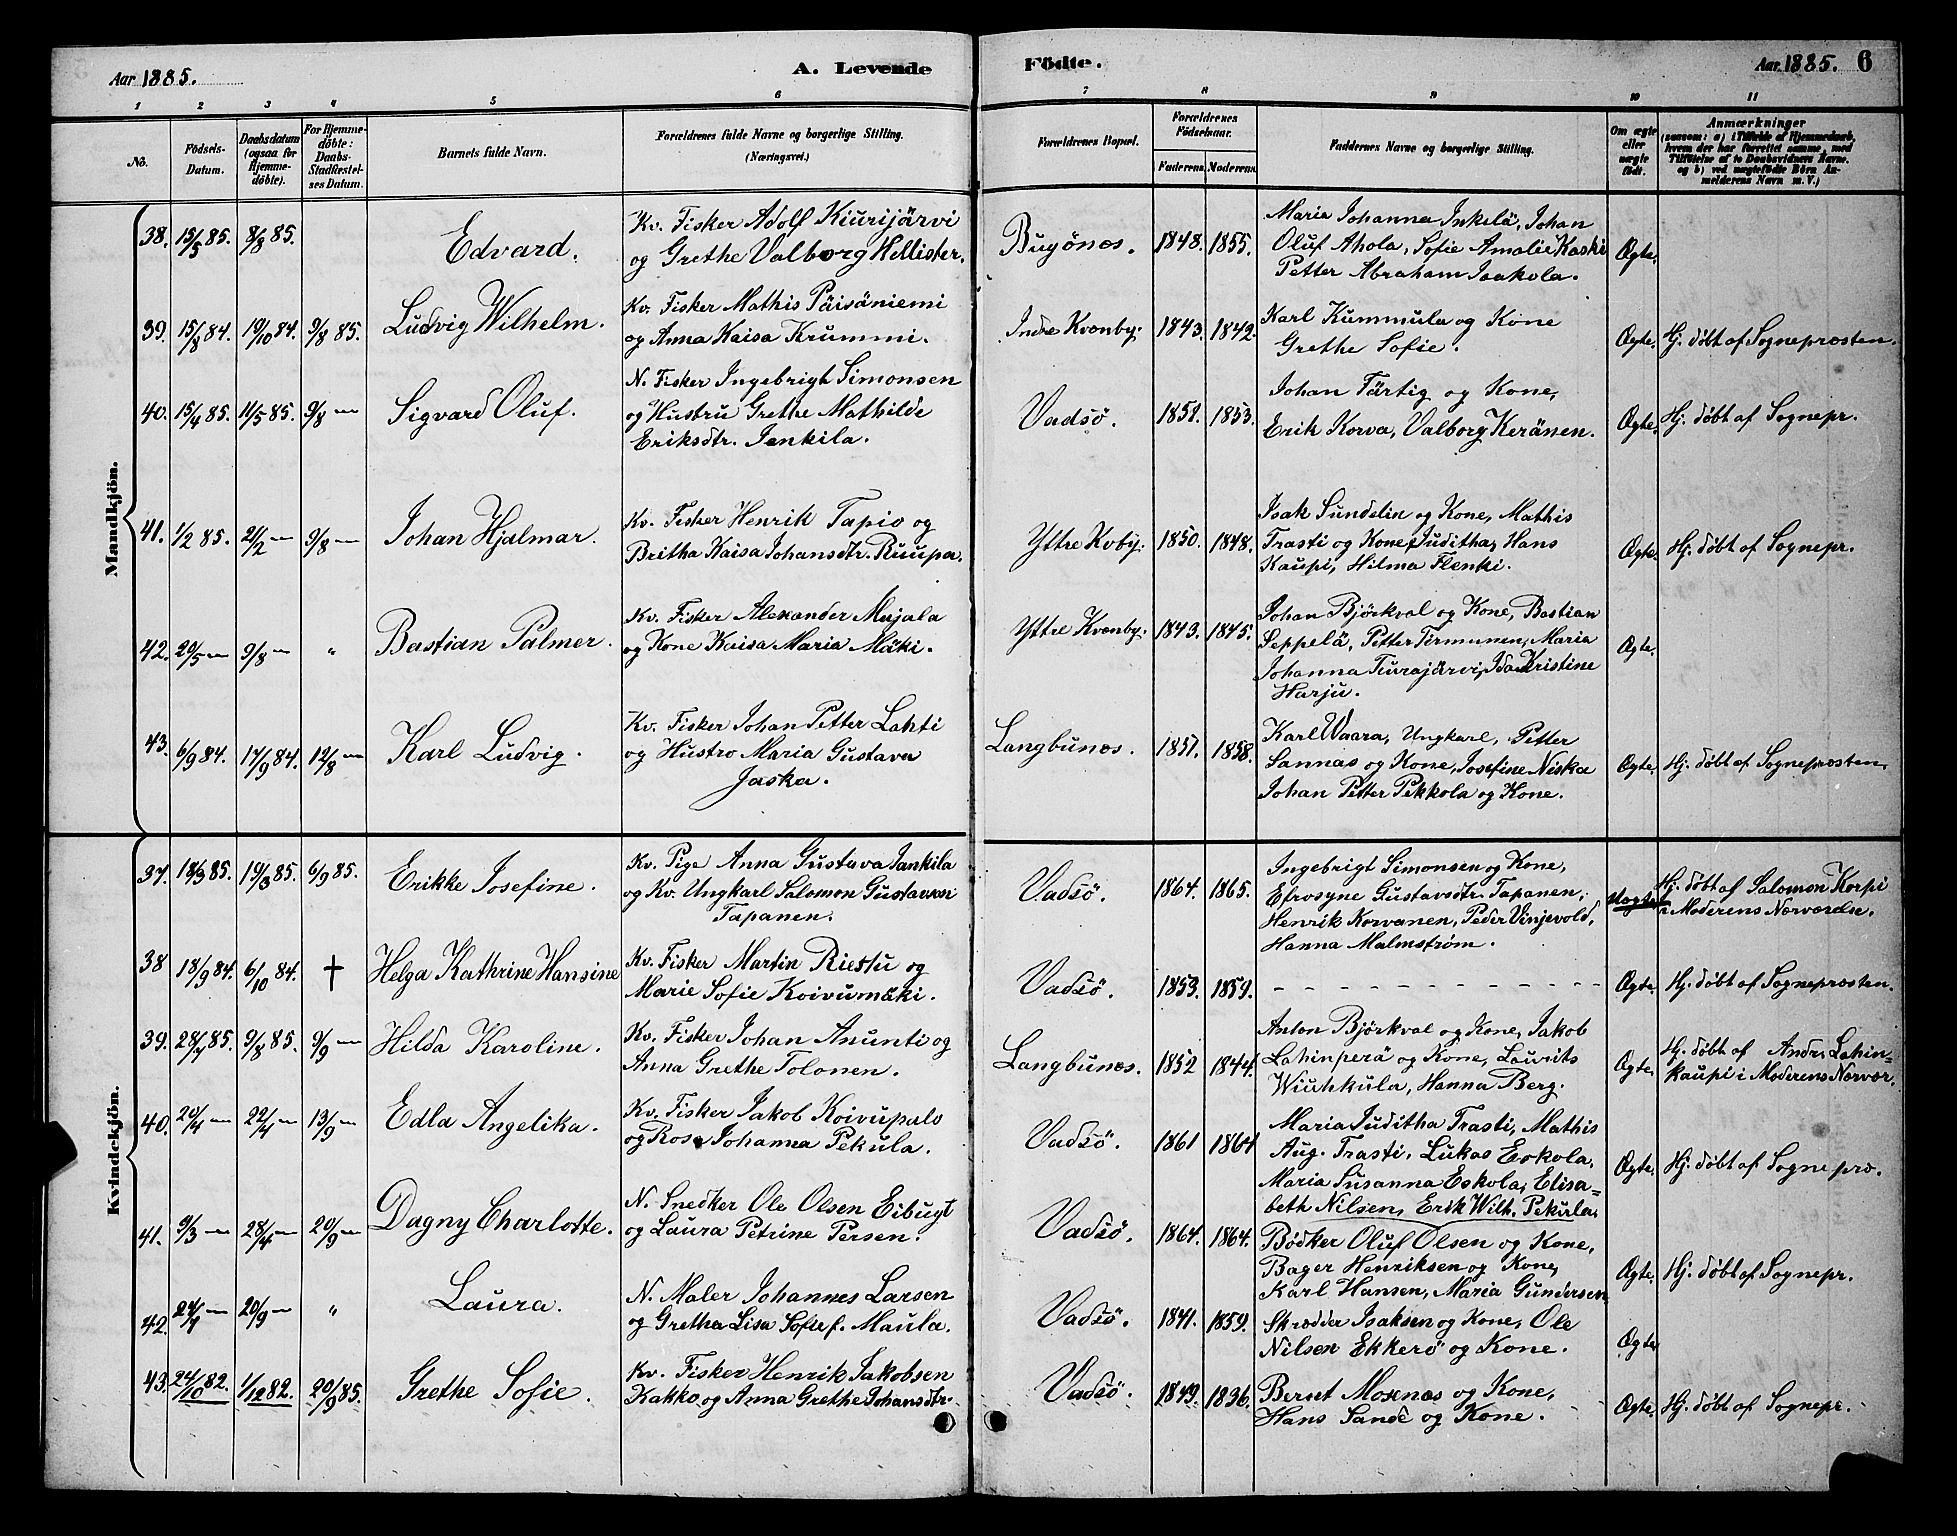 Aar 1885.
A. Levende
Födte.
Aar 1885. 6
1 2 3 4 5 6 7 8 9 10 11
No.
Födsels-
Datum.
Daabsdatum
(ogsaa for
Hjemme-
döbte).
For Hjemme-
döbte:
Daabs-
Stadfæstel-
ses Datum.
Barnets fulde Navn.
Forældrenes fulde Navne og borgerlige Stilling.
(Næringsvei.)
Forældrenes Bopæl.
Forældrenes
Födselsaar.
Faderens. Moderens.
Faddernes Navne og borgerlige Stilling.
Om ægte
eller
uægte
födt.
Anmærkninger
(saasom: a) i Tilfælde af Hjemmedaab,
hvem der har forrettet samme, med
Tilföielse af to Daabsvidners Navne.
og b) ved uægtefödte Börn An-
melderens Navn m. V.)
Mandkjön.
38. 15/5 85. 8/8 85. Edvard.
Kv. Fisker Adolf Kiurijärvi
og Grethe Valborg Hellister.
Bugönes. 1848. 1855.
Maria Johanna Inkelä, Johan
Oluf Ahola, Sofie Amalie Kaski
Petter Abraham Isakola.
Ægte.
39. 15/8 84. 19/10 84. 9/8 85. Ludvig Wilhelm.
Kv. Fisker Mathis Päisäniemi
og Anna Kaisa Krummi.
Indre Kvænby. 1843. 1842.
Karl Kummula og Kone
Grethe Sofie.
Ægte. Hj. döbt af Sognepræsten.
40. 15/4 85. 11/5 85. 9/8 — Sigvard Oluf.
N. Fisker Ingebrigt Simonsen
og Hustru Grethe Mathilde
Eriksdtr. Jankila.
Vadsö. 1852. 1853.
Johan Färtig og Kone,
Erik Korva, Valborg Keränen.
Ægte. Hj. döbt af Sognepr.
41. 1/2 85. 21/2 — 9/8 — Johan Hjalmar.
Kv. Fisker Henrik Tapio og
Britha Kaisa Johansdtr. Ruupa.
Yttre Kvby. 1850. 1848.
Isak Sundelin og Kone, Mathis
Trasti og Kone, Juditha, Hans
Kaupi, Hilma Flenki.
Ægte. Hj. döbt af Sognepr.
42. 20/5 — 9/8 — " Bastian Palmer.
Kv. Fisker Alexander Mujala
og Kone Kaisa Maria Mäki.
Yttre Kvænby. 1843. 1845.
Johan Björkval og Kone, Bastian
Seppelä, Petter Termunen, Maria
Johanna Turajärvi, Ida Kristine
Harju.
Ægte.
43. 6/9 84. 17/9 84. 12/8 — Karl Ludvig.
Kv. Fisker Johan Petter Lahti
og Hustro Maria Gustava
Jaska.
Langbunes. 1851. 1858.
Karl Waara, Ungkarl, Petter
Sannas og Kone, Josefine Niska
Johan Petter Pekkola og Kone.
Ægte. Hj. döbt af Sognepræsten.
Kvindekjön.
37. 18/3 85. 19/3 85. 6/9 85. Erikke Josefine.
Kv. Pige Anna Gustava Jankila
og Kv. Ungkarl Salomon Gustavsen
Tapanen.
Vadsö. 1864. 1865.
Ingebrigt Simonsen og Kone,
Efrosyne Gustavsdtr. Tapanen,
Henrik Korvanen, Peder Vinjevold,
Hanna Malmström.
Uægte Hj. döbt af Salomon Korpi
i Moderens Nærværelse.
38 18/9 84. 6/10 84. † Helga Kathrine Hansine
Kv. Fisker Martin Riestu og
Marie Sofie Koivumäki.
Vadsö. 1853. 1859.
Ægte. Hj. döbt af Sognepræsten.
39. 28/7 85. 9/8 85. 9/9 — Hilda Karoline.
Kv. Fisker Johan Anunti og
Anna Grethe Tolonen.
Langbunes. 1852 1844.
Anton Björkval og Kone, Jakob
Lahinperä og Kone, Laurits
Wiuhkula, Hanna Berg.
Ægte. Hj. döbt af Andr. Lahin-
kaupi i Moderens Nærvær.
40. 20/4 — 22/4 — 13/9 — Edla Angelika.
Kv. Fisker Jakob Koivupalo
og Rosa Johanna Pekula.
Vadsö. 1861 1864
Maria Juditha Trasti, Mathis
Aug. Trasti, Lukas Eskola,
Maria Susanna Eskola, Elisa-
beth Nilsen, Erik Wilh. Pekula.
Ægte. Hj. döbt af Sognepræ.
41. 9/3 — 28/4 — 20/9 — Dagny Charlotte.
N. Snedker Ole Olsen Eibugt
og Laura Petrine Persen.
Vadsö. 1864. 1864.
Bödker Oluf Olsen og Kone,
Bager Henriksen og Kone,
Karl Hansen, Maria Gundersen
Ægte. Hj. döbt af Sognepr.
42. 24/4 — 20/9 — " Laura.
N. Maler Johannes Larsen
og Gretha Lisa Sofie f. Maula.
Vadsö. 1841. 1859.
Skrædder Isaksen og Kone, Ole
Nilsen Ekkerö og Kone.
Ægte
43. 24/10 82. 1/12 82. 20/9 85. Grethe Sofie.
Kv. Fisker Henrik Jakobsen
Kakko og Anna Grethe Johansdtr.
Vadsö. 1849. 1836.
Bernt Moxnæs og Kone,
Hans Sande og Kone.
Ægte. Hj. döbt af Sognepr.